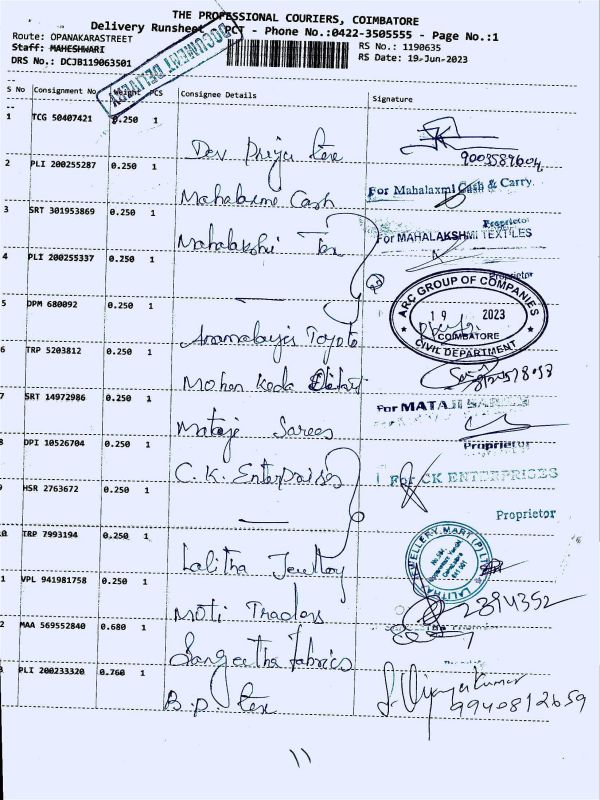 THE PROFESSIONAL COURIERS, COIMBATORE
Delivery Runsheet PCT - Phone No.:0422-3505555 - Page No.:1
Route: OPANAKARASTREET
RS No.: 1190635
Staff: MAHESHWARI
RS Date: 19-Jun-2023
DRS No.: DCJB119063501
DOCUMENT DELIVERY
S No Consignment No Weight PCS Consignee Details Signature
1 TCG 50407421 0.250 1
Dev Priya Tex
2 PLI 200255287 0.250 1
Mahalaxme Cash
For Mahalaxmi Cash & Carry
Proprietor
3 SRT 301953869 0.250 1
Mahalakshi Tex
For MAHALAKSHMI TEXTILES
Proprietor
4 PLI 200255337 0.250 1
ARC GROUP OF COMPANIES
19 2023
COIMBATORE
CIVIL DEPARTMENT
5 DPM 680092 0.250 1
Toyota
6 TRP 5203812 0.250 1
Mohan
7 SRT 14972986 0.250 1
Mataji Sarees
For MATAJI SAREES
Proprietor
8 DPI 10526704 0.250 1
C.K. Enterprises
For CK ENTERPRISES
Proprietor
9 HSR 2763672 0.250 1
10 TRP 7993194 0.250 1
Lalitha Jewellory
LALITHA JEWELLERY MART (P) LTD
1 VPL 941981758 0.250 1
Moti Traders
2394352
2 MAA 569552840 0.680 1
Sangeetha fabrics
3 PLI 200233320 0.760 1
B.P Tex
S. Vijayakumar
9940812659
11